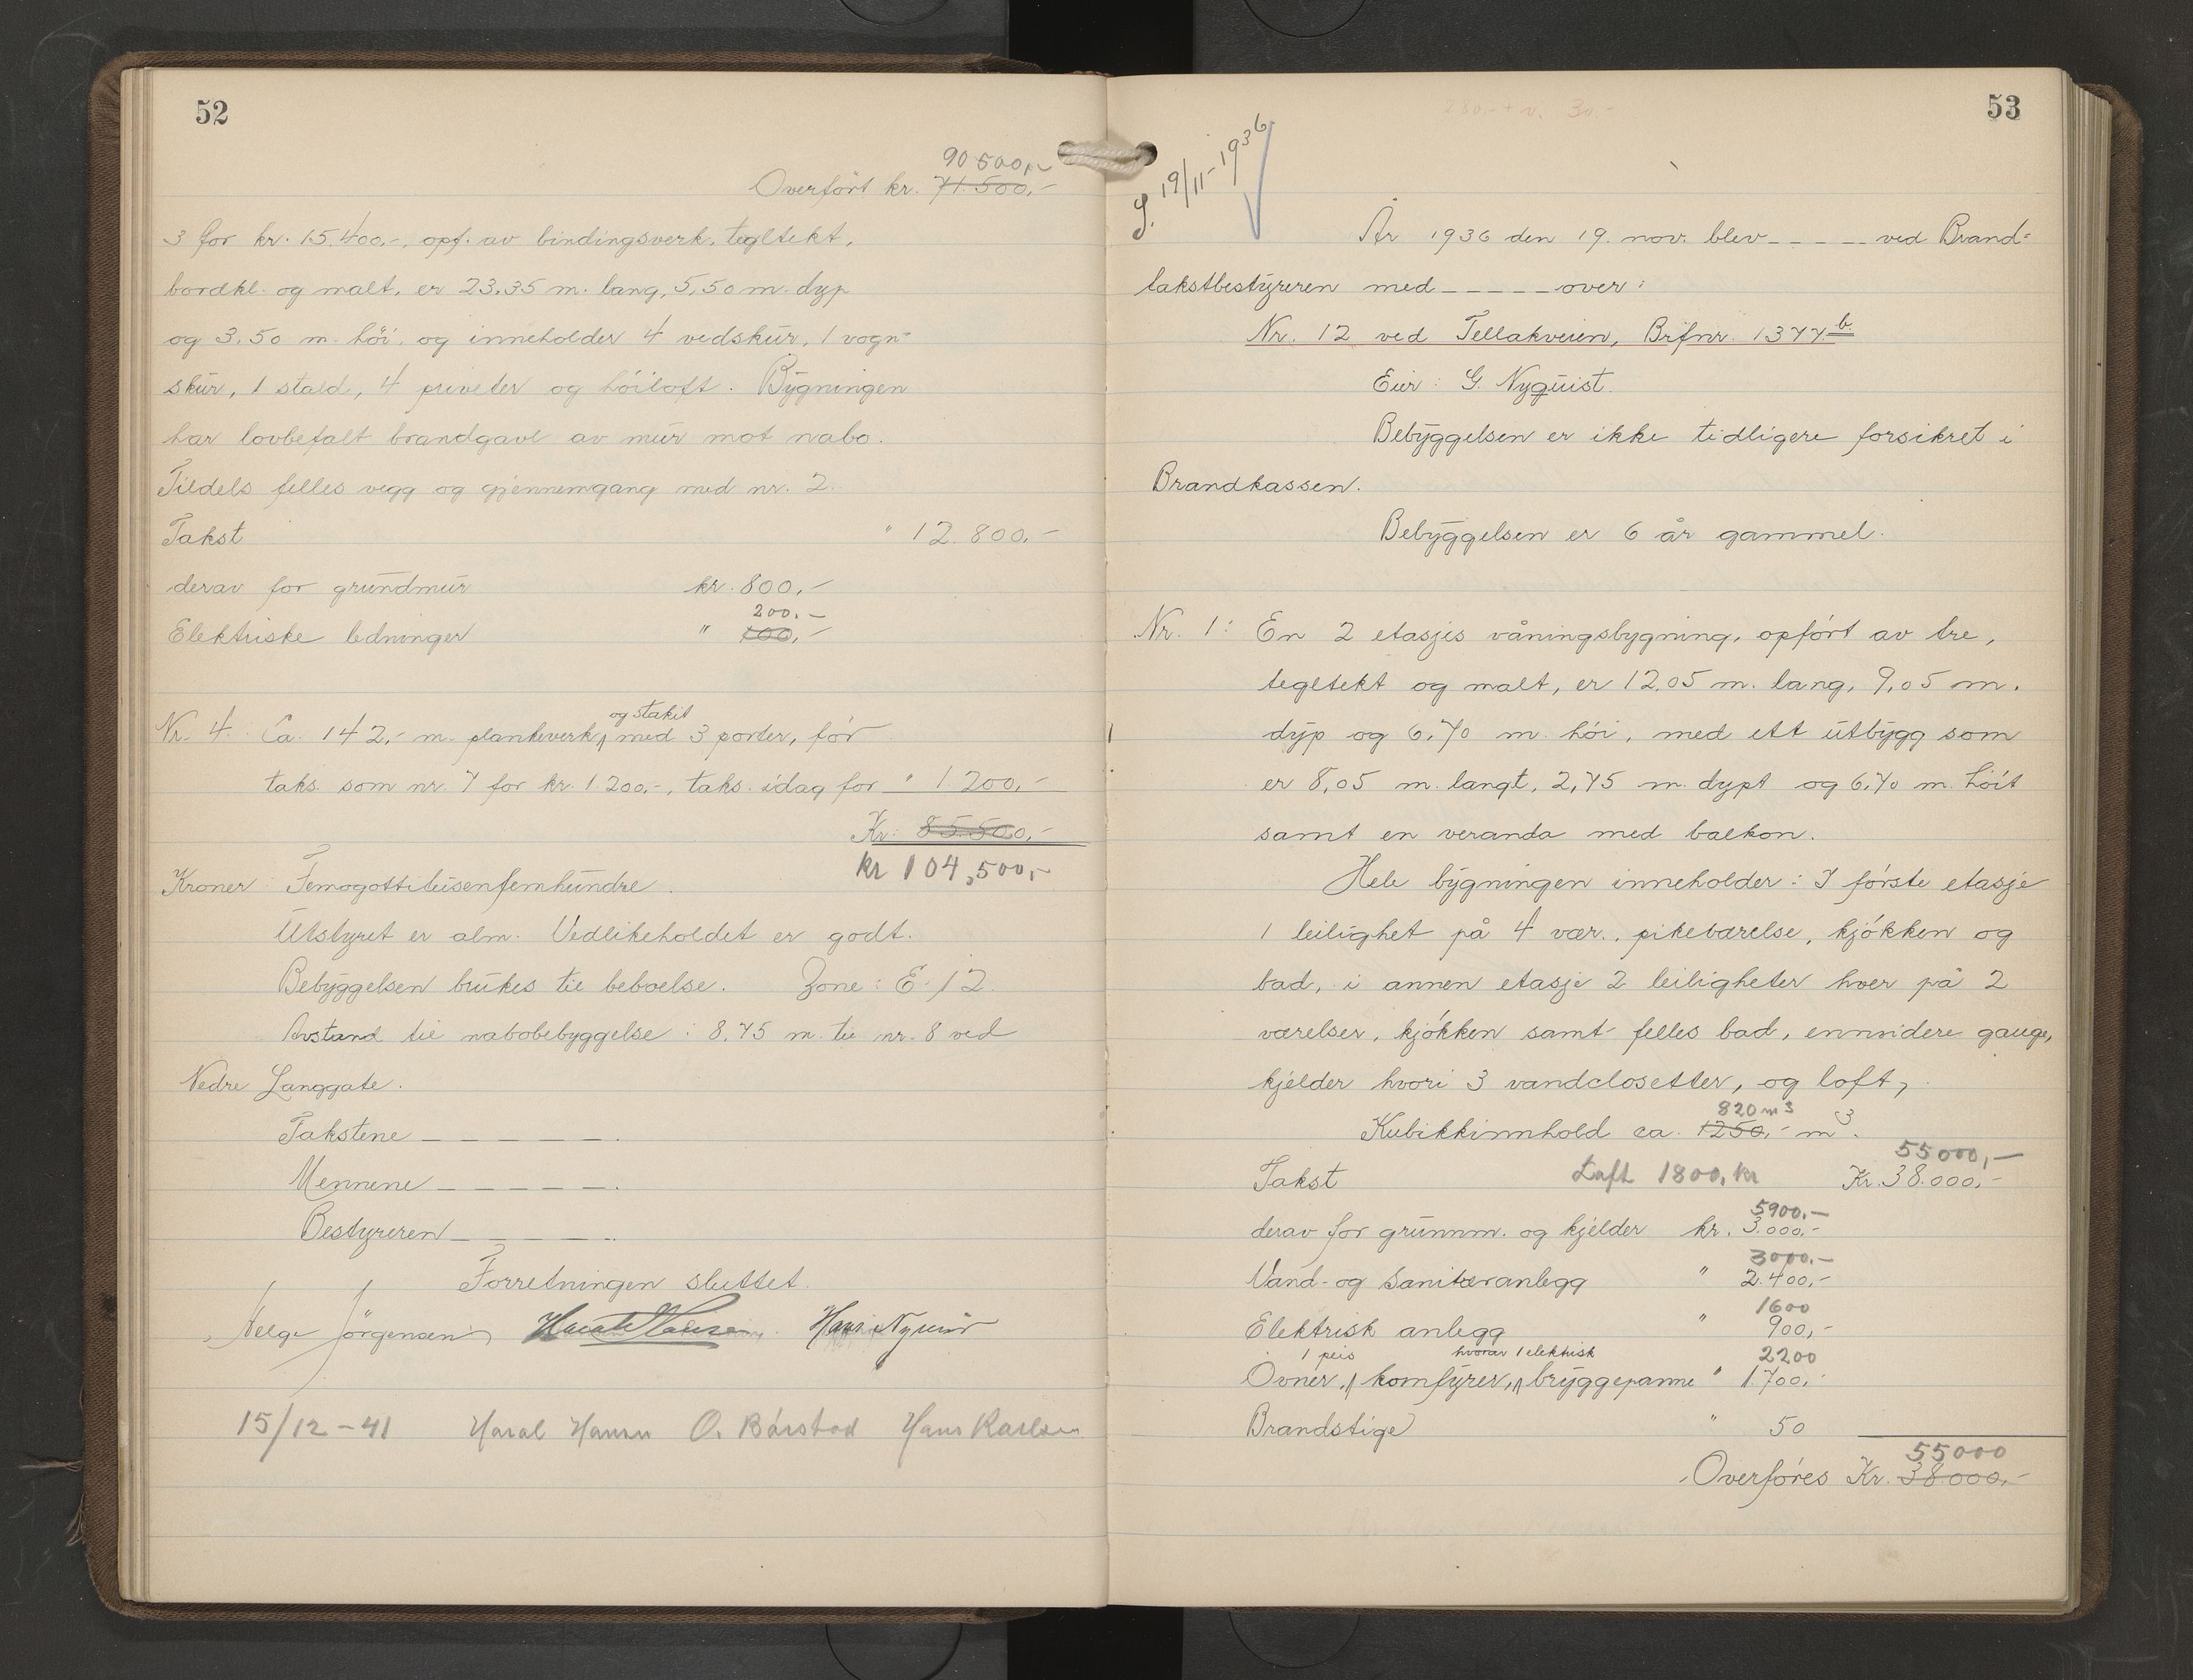 52
90 500,-
Overført kr. 71.500,-
3 for kr. 15.400,-, opf. av bindingsverk, tegltekt,
bordkl. og malt, er 23,35 m. lang, 5,50 m. dyp
og 3,50 m. höi, og inneholder 4 vedskur, 1 vogn-
skur, 1 stald, 4 priveter og höiloft. Bygningen
har lovbefalt brandgavl av mur mot nabo.
Tildels felles vegg og gjennemgang med nr. 2.
Takst " 12.800,-
derav for grundmur kr. 800,-
200,-
Elektriske ledninger " 100,-
og stakit
Nr. 4. Ca. 142,- m. plankeverk, med 3 porter, før
taks. som nr. 7 for kr. 1.200,-, taks. idag for " 1.200,-
Kr. 85.500,-
kr 104,500,-
Kroner: Femogottitusenfemhundre.
Utstyret er alm. Vedlikeholdet er godt.
Bebyggelsen brukes til beboelse. Zone: E. 12.
Avstand til nabobebyggelse: 8,75 m. til nr. 8 ved
Nedre Langgate.
Takstene _ _ _ _ _ _.
Mennene _ _ _ _ _ _.
Bestyreren _ _ _ _ _ _.
Forretningen sluttet.
Helge Jörgensen Harald Hansen Hans
15/12-41 Haral Hansen O. Bårstad Hans Karlsen
53
280.- + v. 30.-
S. 19/11-1936
År 1936 den 19. nov. blev _ _ _ _ _ ved Brand-
takstbestyreren med _ _ _ _ _ over:
Nr. 12 ved Tellakveien, Brfnr. 1377 b.
Eier: G. Nyquist.
Bebyggelsen er ikke tidligere forsikret i
Brandkassen.
Bebyggelsen er 6 år gammel.
Nr. 1: En 2 etasjes våningsbygning, opført av tre,
tegltekt og malt, er 12,05 m. lang, 9,05 m.
dyp og 6,70 m. höi, med ett utbygg som
er 8,05 m. langt, 2,75 m. dypt og 6,70 m. höit
samt en veranda med balkon.
Hele bygningen inneholder: I første etasje
1 leilighet på 4 vær., pikeværelse, kjøkken og
bad, i annen etasje 2 leiligheter hver på 2
værelser, kjøkken samt felles bad, ennvidere gange,
kjelder hvori 3 vandclosetter, og loft,
820 m3
Kubikkinnhold ca. 1250,- m3.
55000,-
Takst Luft 1800, kr Kr. 38.000,-
5900,-
derav for grunnm. og kjelder kr. 3.000,-
3000,-
Vand- og Sanitæranlegg " 2.400,-
1600
Elektrisk anlegg " 900,-
1 peis hvorav 1 elektrisk 2200
Ovner, komfyrer, bryggepanne " 1.700,-
Brandstige " 50
55000
Overføres Kr. 38.000,-